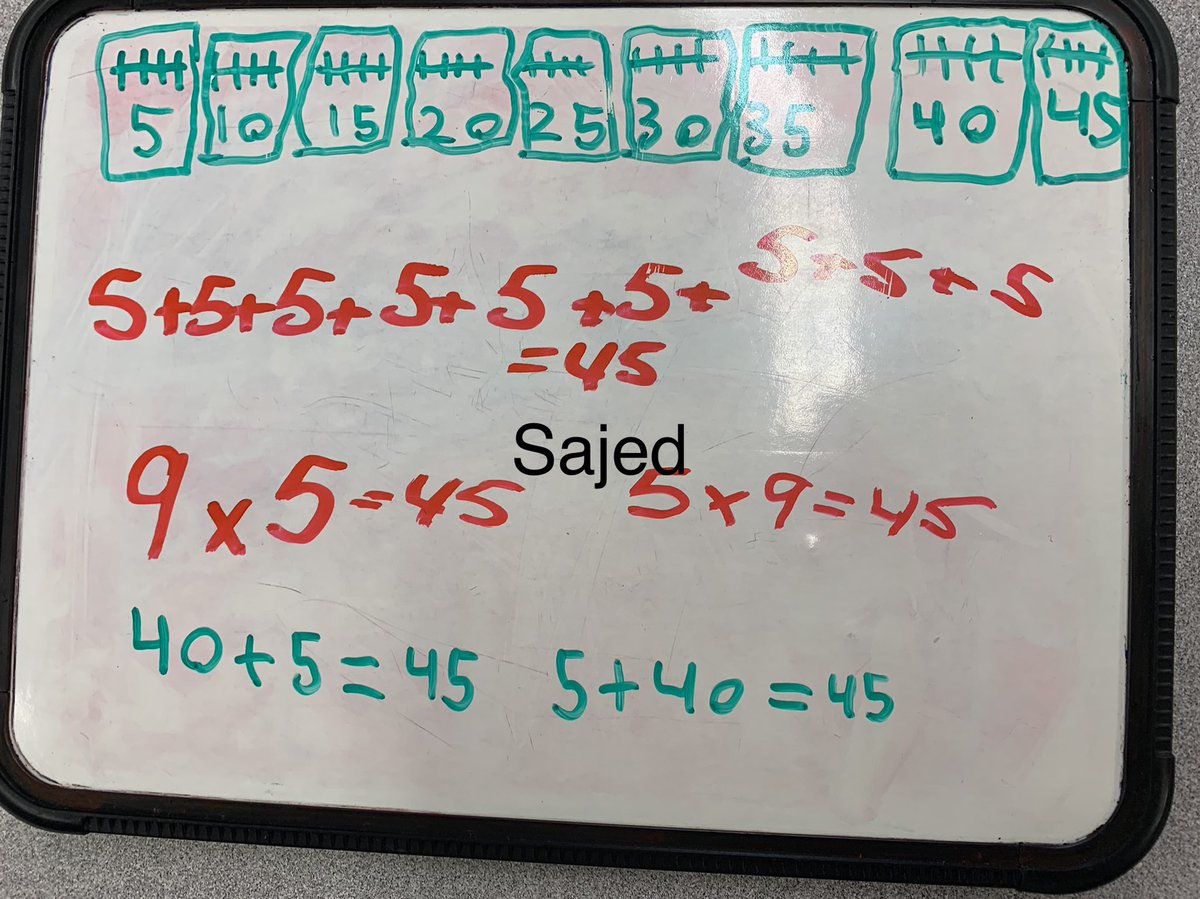 5 10 15 20 25 30 35 40 45
5+5+5+5+5+5+5+5+5
=45
Sajed
9x5=45 5x9=45
40+5=45 5+40=45